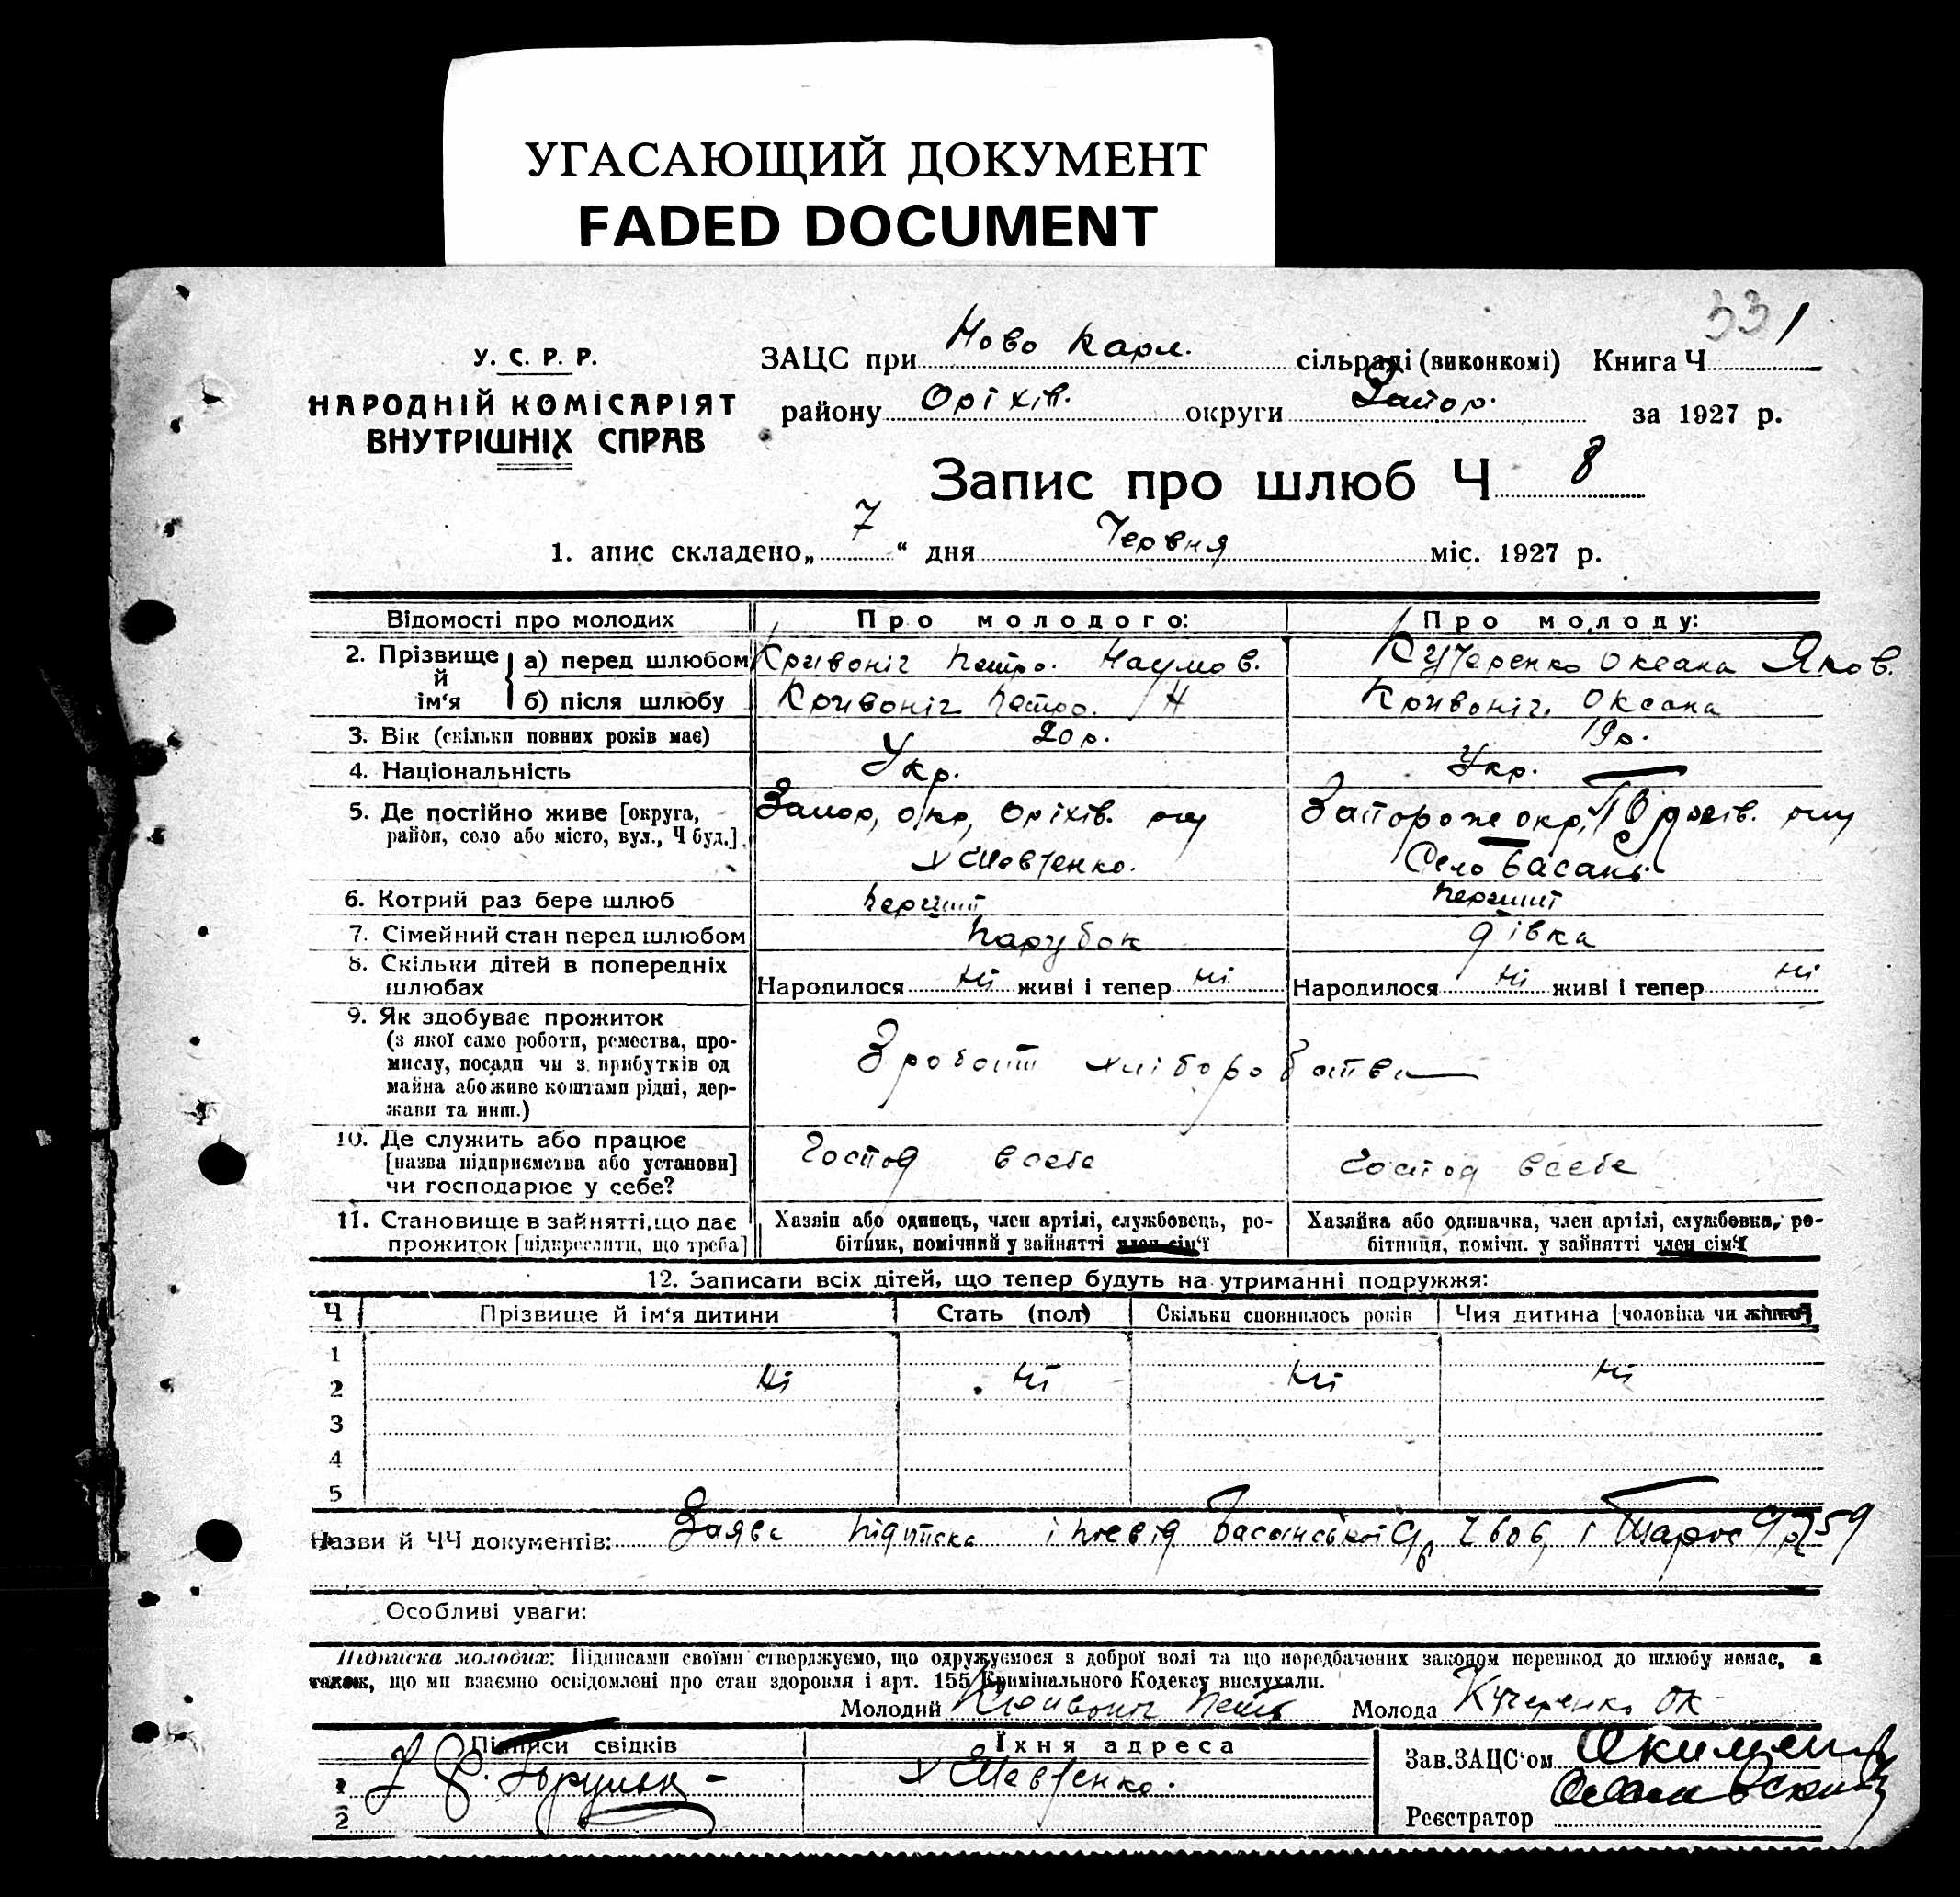 УГАСАЮЩИЙ ДОКУМЕНТ
FADED DOCUMENT
33 1
У. С. Р. Р.
НАРОДНІЙ КОМІСАРІЯТ
ВНУТРІШНІХ СПРАВ
ЗАЦС при Ново Карл. сільраді (виконкомі) Книга Ч
району Оріхів. округи Запор. за 1927 р.
Запис про шлюб Ч 8
1. апис складено „ 7 “ дня Червня міс. 1927 р.
Відомості про молодих Про молодого: Про молоду:
2. Прізвище й ім‘я а) перед шлюбом Кривоніг Петро. Наумов. Кучеренко Оксана Яков.
б) після шлюбу Кривоніг Петро. Н Кривоніг. Оксана
3. Вік (скільки повних років має) 20 р. 19 р.
4. Національність Укр. Укр.
5. Де постійно живе [округа, район, село або місто, вул., Ч буд.]. Запор, окр, Оріхів. х Шевченко. Запорож окр, Село Басань.
6. Котрий раз бере шлюб перший перший
7. Сімейний стан перед шлюбом парубок дівка
8. Скільки дітей в попередніх шлюбах Народилося ні живі і тепер ні Народилося ні живі і тепер ні
9. Як здобуває прожиток
(з якої само роботи, ремества, про-
мислу, посади чи з прибутків од
майна або живе коштами рідні, дер-
жави та инш.)
З роботи хліборобства
10. Де служить або працює
[назва підприємства або установи]
чи господарює у себе?
Господ в себе Господ в себе
11. Становище в зайнятті, що дає
прожиток [підкреслити, що треба]
Хазяін або одинець, член артілі, службовець, ро-
бітник, помічний у зайнятті член сім‘ї
Хазяйка або одиначка, член артілі, службовка, ро-
бітниця, помічн. у зайнятті член сім‘ї
12. Записати всіх дітей, що тепер будуть на утриманні подружжя:
Ч Прізвище й ім‘я дитини Стать (пол) Скільки сповнилось років Чия дитина [чоловіка чи жінки]
1
2 ні ні ні ні
3
4
5
Назви й ЧЧ документів: Заява підписка і Басанської
Особливі уваги:
Підписка молодих: Підписами своїми стверджуємо, що одружуємося з доброї волі та що передбачених законом перешкод до шлюбу немає, а
також, що ми взаємно освідомлені про стан здоровля і арт. 155 Кримінального Кодексу вислухали.
Молодий Кривоніг Молода Кучеренко Ок
Підписи свідків Їхня адреса Зав. ЗАЦС‘ом
1 х Шевченко.
2 Реєстратор